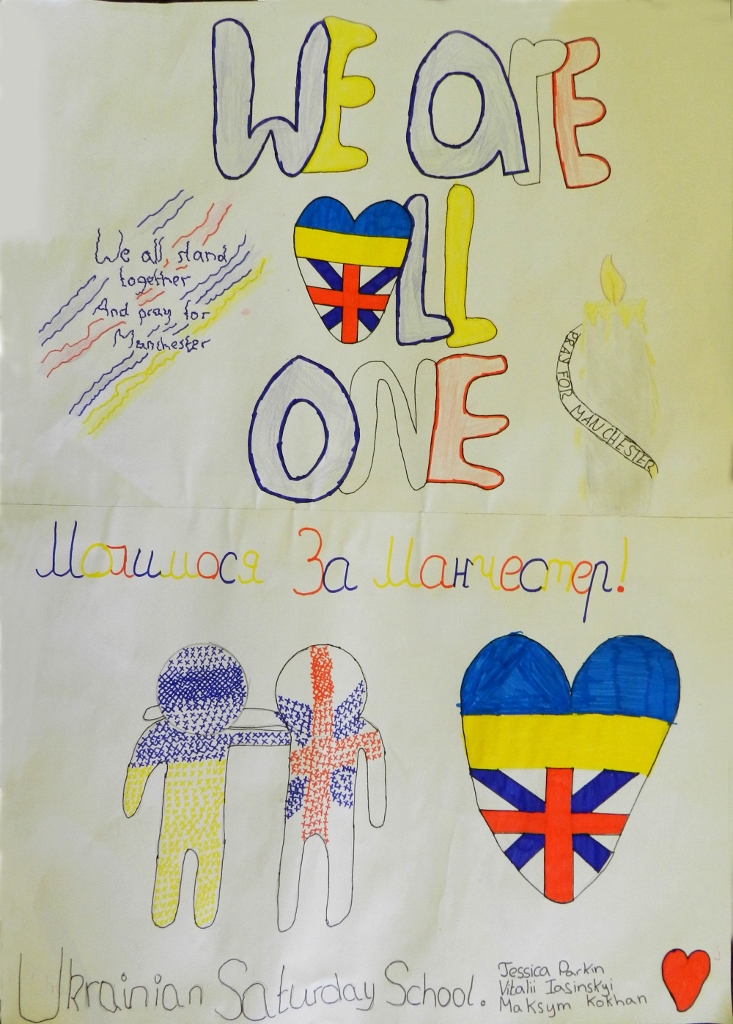 WE arE
LL
ONE
We all, stand
together
And pray for
Manchester
PRAY FOR MANCHESTER
Молимося За Манчестер!
Ukrainian Saturday School.
Jessica Parkin
Vitalii Iasinskyi
Maksym Kokhan